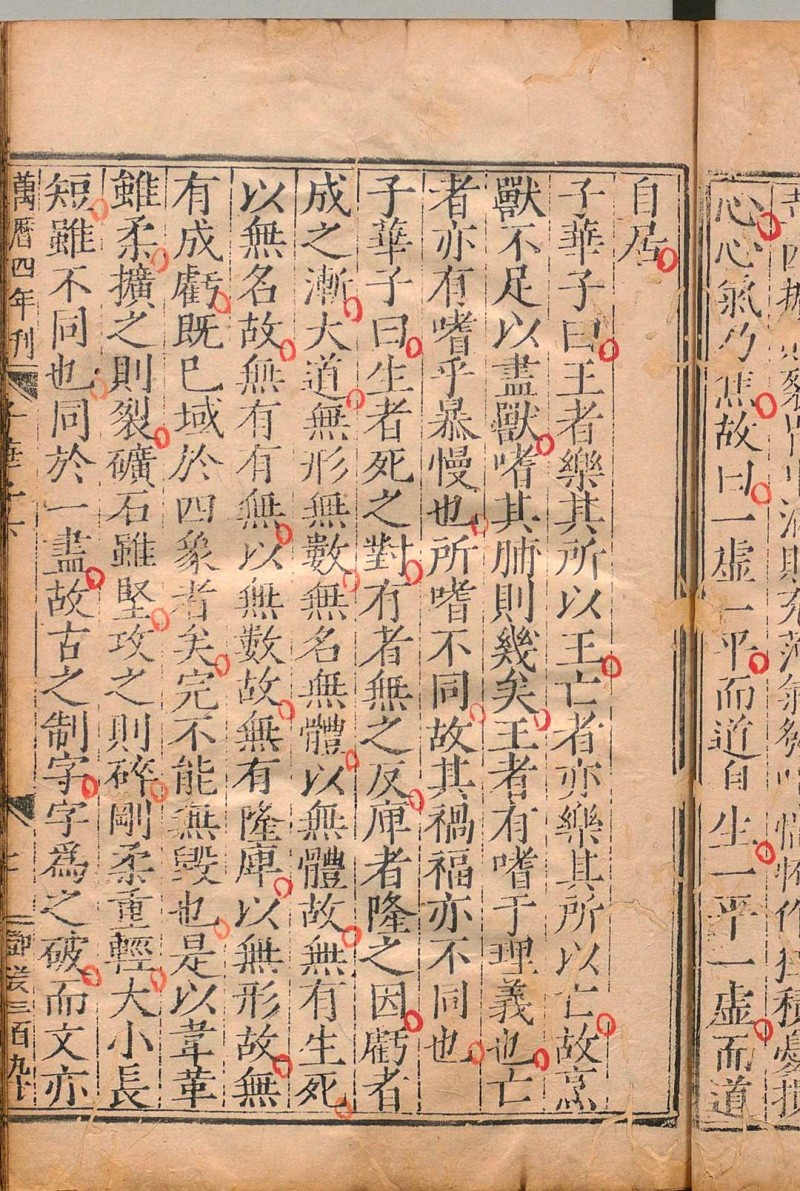 心心氣乃焦故曰一虛一平而道自生一平一虛而道
自居
子華子曰王者樂其所以王亡者亦樂其所以亡故烹
獸不足以盡獸嗜其脯則幾矣王者有嗜于理義也亡
者亦有嗜乎㬥慢也所嗜不同故其禍福亦不同也
子華子曰生者死之對有者無之反庳者隆之因虧者
成之漸大道無形無數無名無體以無體故無有生死
以無名故無有有無以無數故無有隆庳以無形故無
有成虧既已域於四象者矣完不能無毀也是以韋革
雖柔擴之則裂礦石雖堅攻之則碎剛柔重輕大小長
短雖不同也同於一盡故古之制字字為之破而文亦
萬曆四年刊